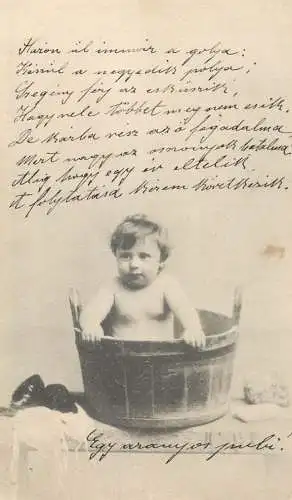 Háron ül immár a gólya;
Készül a negyedik pólya;
Szegény férj az esküszik,
Hogy vele többet meg nem esik.
De kárba vesz az ő fogadalma,
Mert nagy az asszonyok hatalma
Alig hogy egy év eltelik
A folytatása kérem következik.
Egy aranyos pubi!